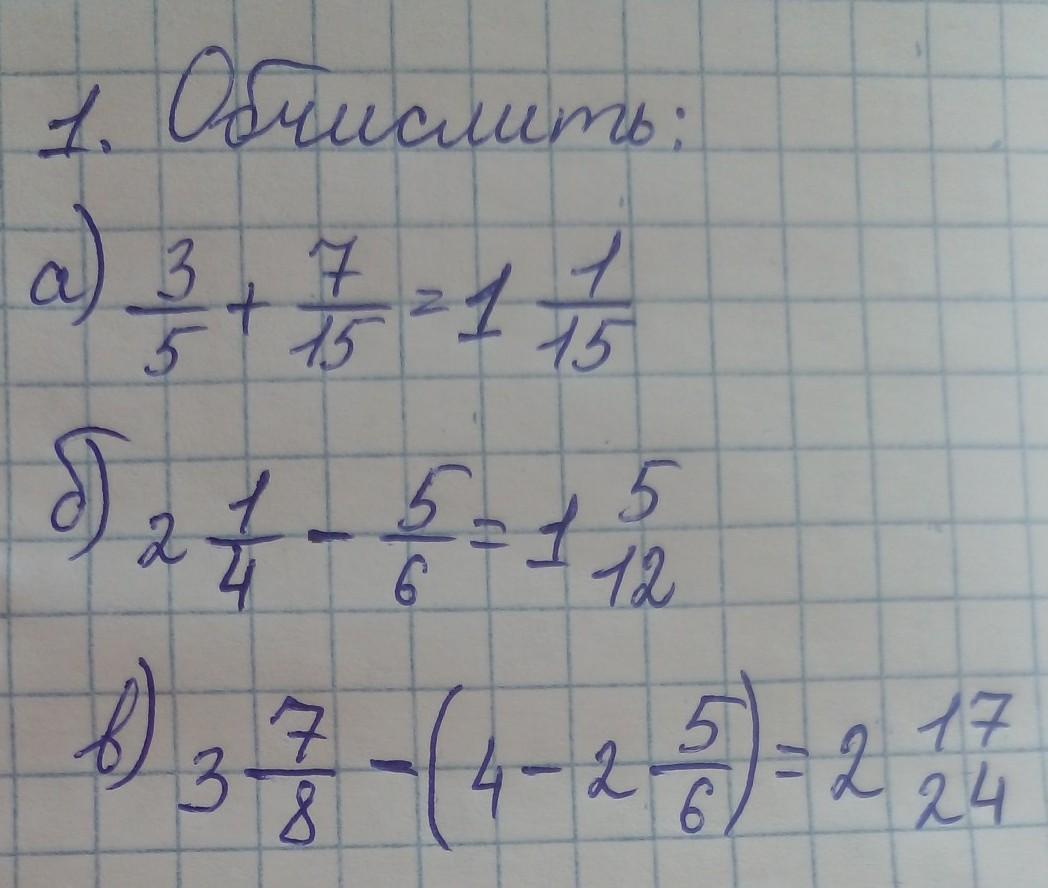 1. Обчислить:
а) 3/5 + 7/15 = 1 1/15
б) 2 1/4 - 5/6 = 1 5/12
в) 3 7/8 - (4 - 2 5/6) = 2 17/24